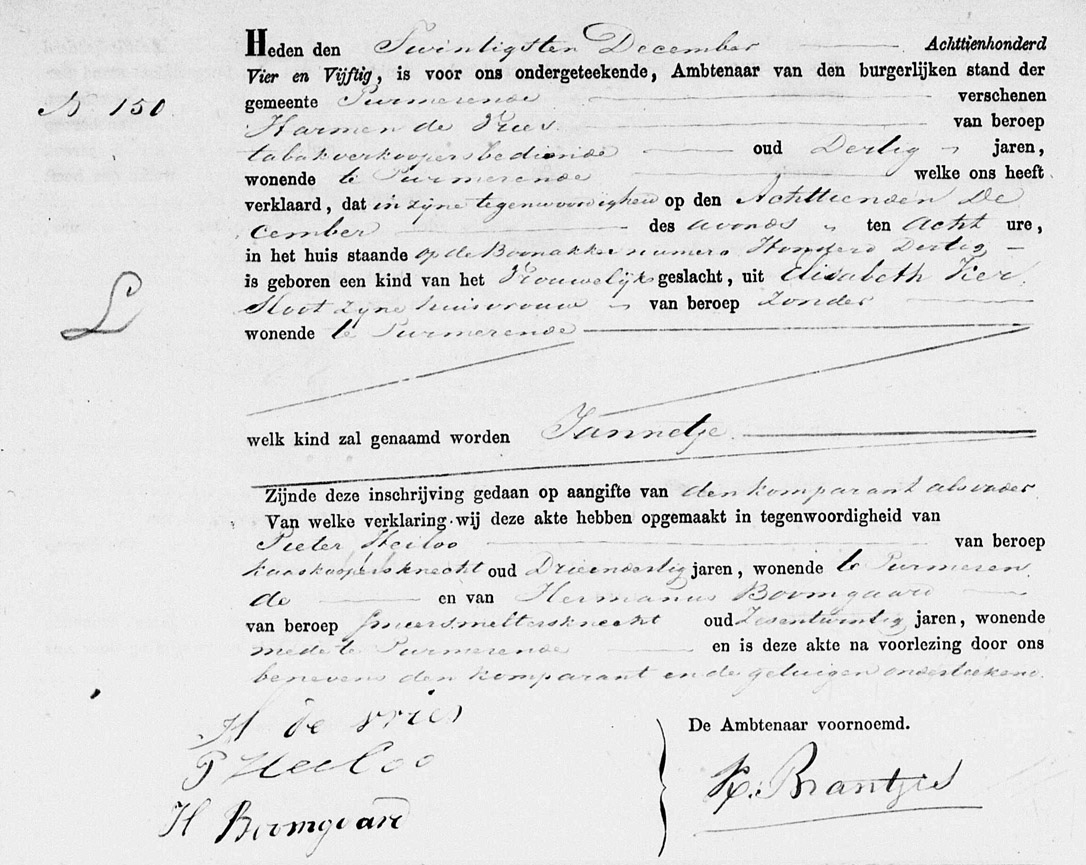 Heden den Twintigsten December Achttienhonderd
Vier en Vijftig, is voor ons ondergeteekende, Ambtenaar van den burgerlijken stand der
N 150.
gemeente Purmerende verschenen
Harmen de Vries van beroep
tabakverkoopersbediende oud Dertig jaren,
wonende te Purmerende welke ons heeft
verklaard, dat in zijne tegenwoordigheid op den Achttienden De
cember des avonds ten acht ure,
in het huis staande op de Boonakker numero Honderd Dertig
is geboren een kind van het Vrouwelijk geslacht, uit Elisabeth Ver
Sloot zijne huisvrouw van beroep Zonder
L
wonende te Purmerende
welk kind zal genaamd worden Jannetje
Zijnde deze inschrijving gedaan op aangifte van den komparant als vader
Van welke verklaring wij deze akte hebben opgemaakt in tegenwoordigheid van
Pieter Heiloo van beroep
kaaskoopersknecht oud Drieendertig jaren, wonende te Purmeren
de en van Hermanus Boomgaard
van beroep smeersmeltersknecht oud Zesentwintig jaren, wonende
mede te Purmerende en is deze akte na voorlezing door ons
benevens den komparant en de getuigen onderteekend.
H de vries
De Ambtenaar voornoemd.
P Heiloo
K. Brantjes
H Boomgaard